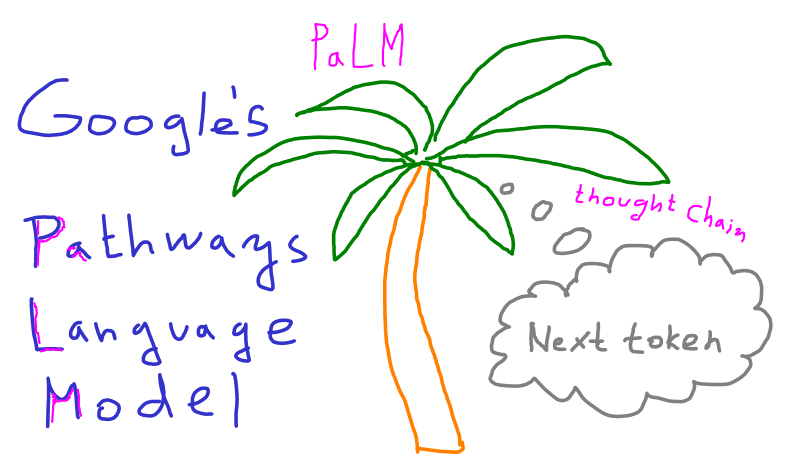 PaLM
Google's
Pathways
Language
Model
thought chain
Next token